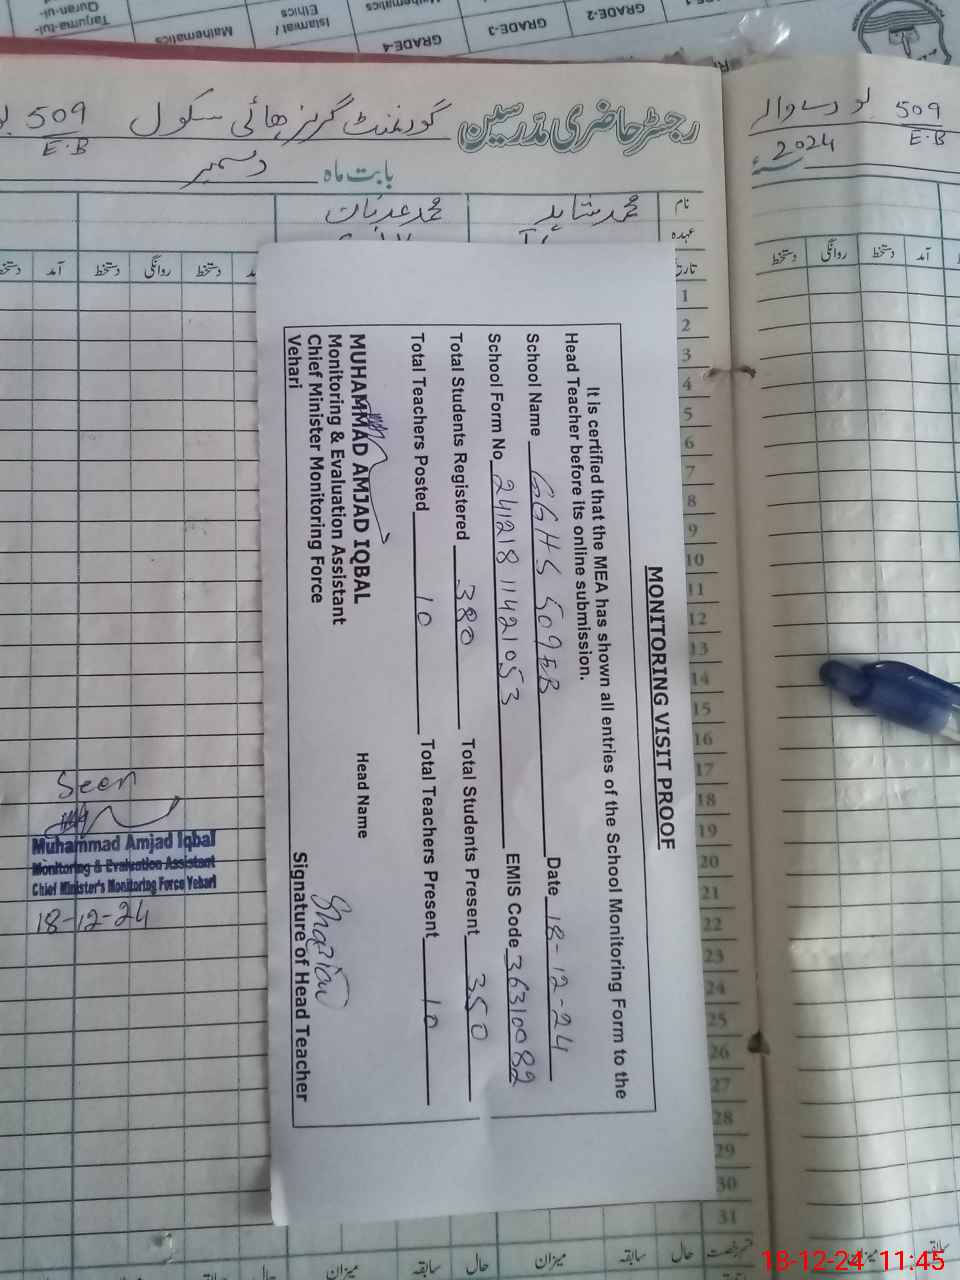 GRADE-2
GRADE-3
GRADE-4
Mathematics
Islamiat /
Ethics
Mathematics
Tarjuma-tul-
Quran-ul-
رجسٹر حاضری مدرسین گورنمنٹ گرلز ہائی سکول 509
E.B
بابت ماہ دسمبر
509
E.B
2024
نام محمد شاہد محمد عدنان
عہدہ
آمد دستخط روانگی دستخط
دستخط روانگی دستخط آمد
1
2
3
4
5
6
7
8
9
10
11
12
13
14
15
16
17
18
19
20
21
22
23
24
25
26
27
28
29
30
31
MONITORING VISIT PROOF
It is certified that the MEA has shown all entries of the School Monitoring Form to the
Head Teacher before its online submission.
School Name GGHS 509 EB Date 18-12-24
School Form No 24121811421053 EMIS Code 36310082
Total Students Registered 380 Total Students Present 350
Total Teachers Posted 10 Total Teachers Present 10
MUHAMMAD AMJAD IQBAL Head Name
Monitoring & Evaluation Assistant
Chief Minister Monitoring Force
Vehari
Signature of Head Teacher
Seen
Muhammad Amjad Iqbal
Monitoring & Evaluation Assistant
Chief Minister's Monitoring Force Vehari
18-12-24
حال سابقہ میزان حال سابقہ میزان
18-12-24 11:45